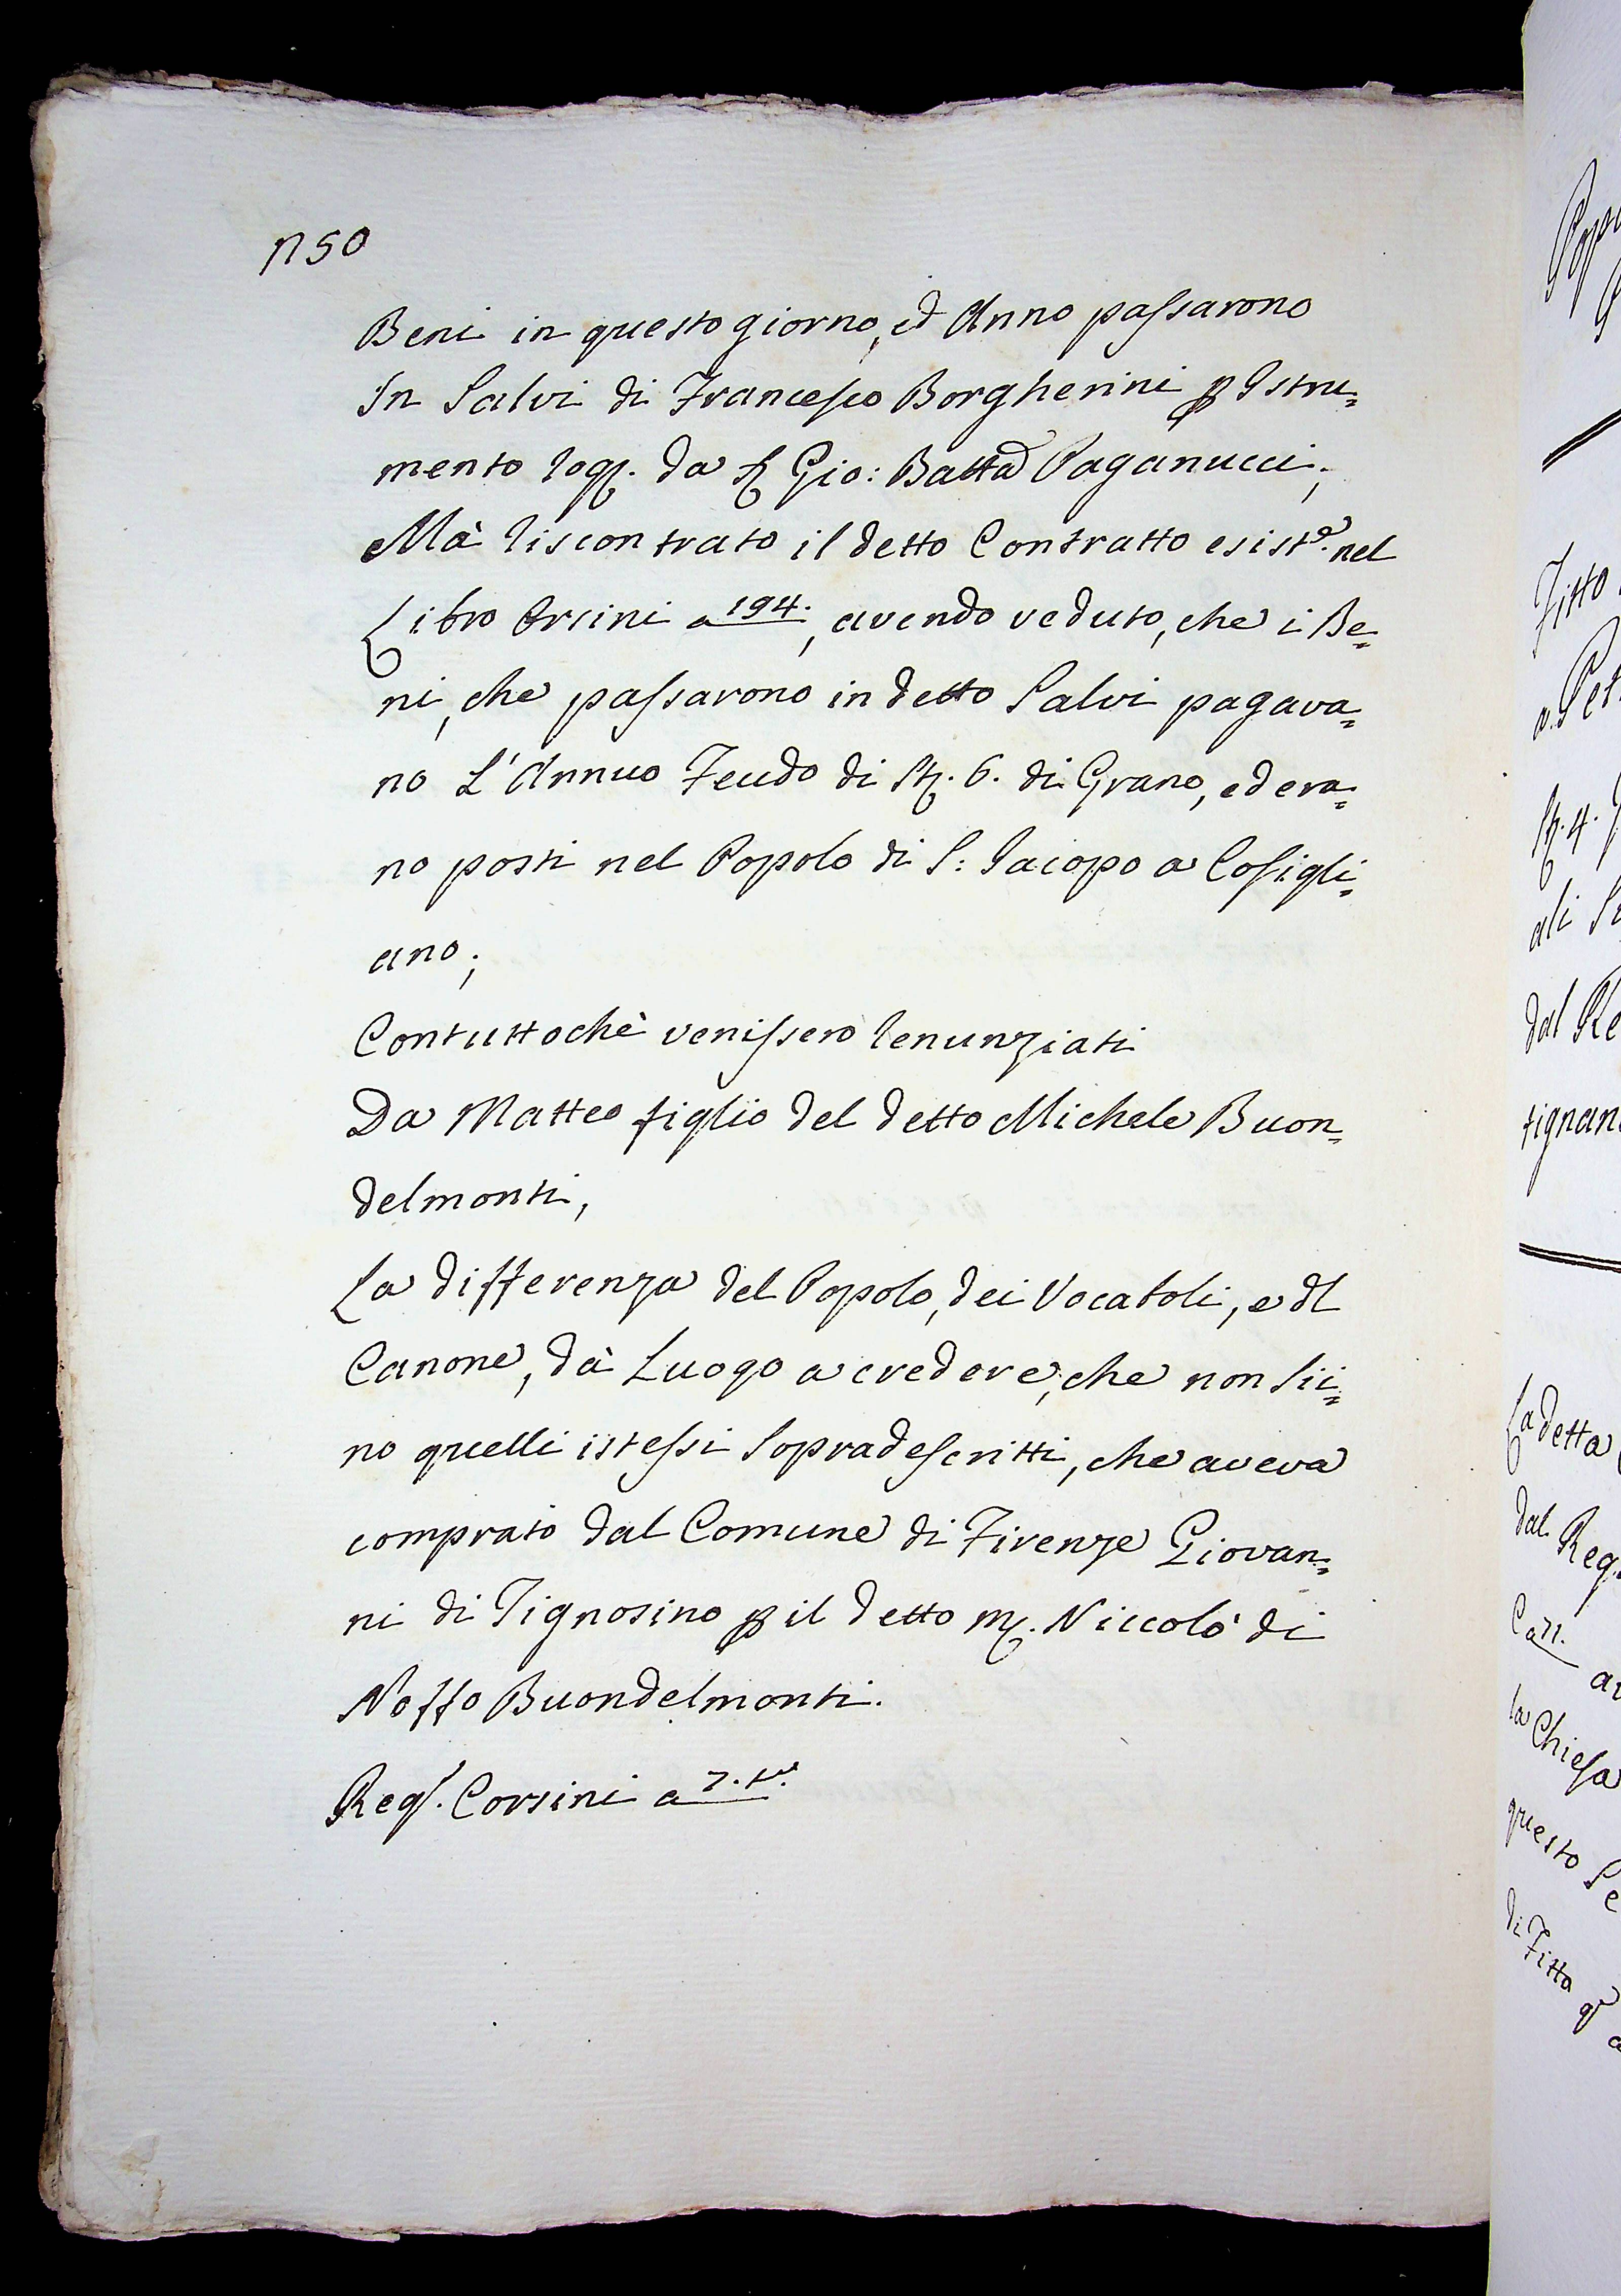 1150
Beni in questo giorno, ed Anno passarono
In Salvi di Francesco Borgherini p Istru=
mento rog. da S Gio: Batta Paganucci;
Mà riscontrato il detto Contratto esiste. nel
Libro Orsini a 194., avendo veduto, che i Be=
ni, che passarono in detto Salvi pagava=
no L'Annuo Feudo di St. 6. di Grano, ed era=
no posti nel Popolo di S: Iacopo a Cosigli=
ano;
Contuttochè venissero renunziati
Da Matteo figlio del detto Michele Buon=
delmonti,
La differenza del Popolo, dei Vocaboli, e dl
Canone, dà Luogo a credere, che non Sii=
no quelli istessi Sopradescritti, che aveva
comprato dal Comune di Firenze Giovan=
ni di Tignosino p il detto M. Niccolò di
Noffo Buondelmonti.
Reg. Corsini a 7. t.
Fitto
St. 4.
dal Re
La detta
dal Reg.
la Chiesa
questo Se
di Fitto